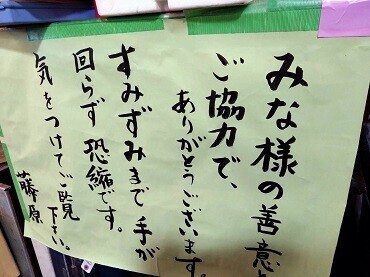 みな様の善意と
ご協力で、
ありがとうございます。
すみずみまで手が
回らず恐縮です。
気をつけてご覧
下さい。
藤原